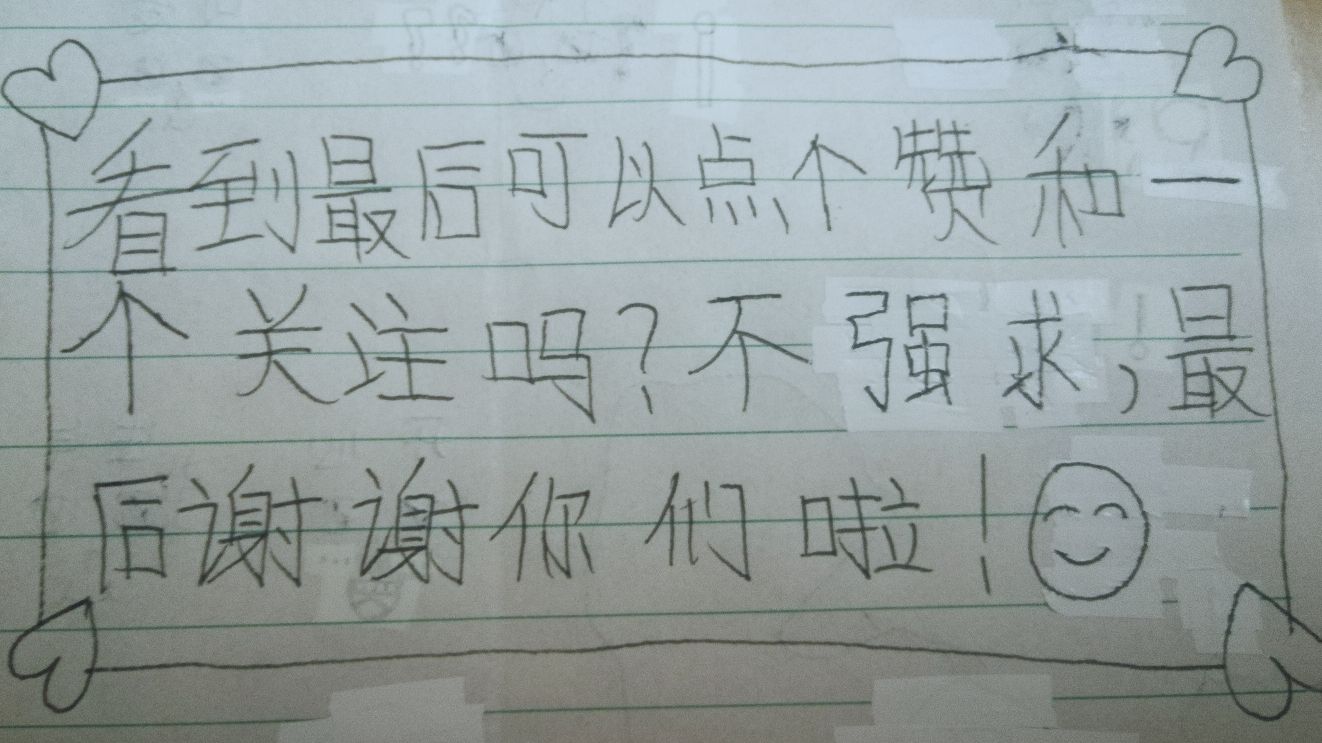 看到最后可以点个赞和一
个关注吗?不强求,最
后谢谢你们啦!